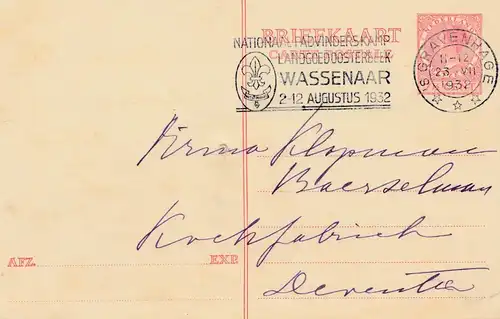 BRIEFKAART
CARTE POSTALE
NATIONAAL PADVINDERSKAMP
LANDGOED OOSTERBEEK
WASSENAAR
2-12 AUGUSTUS 1932
6
'S GRAVENHAGE
23 VII
1932
NEDERLAND
Firma Klopman
Baerselman
Kochfabrich
Deventer
AFZ.
EXP